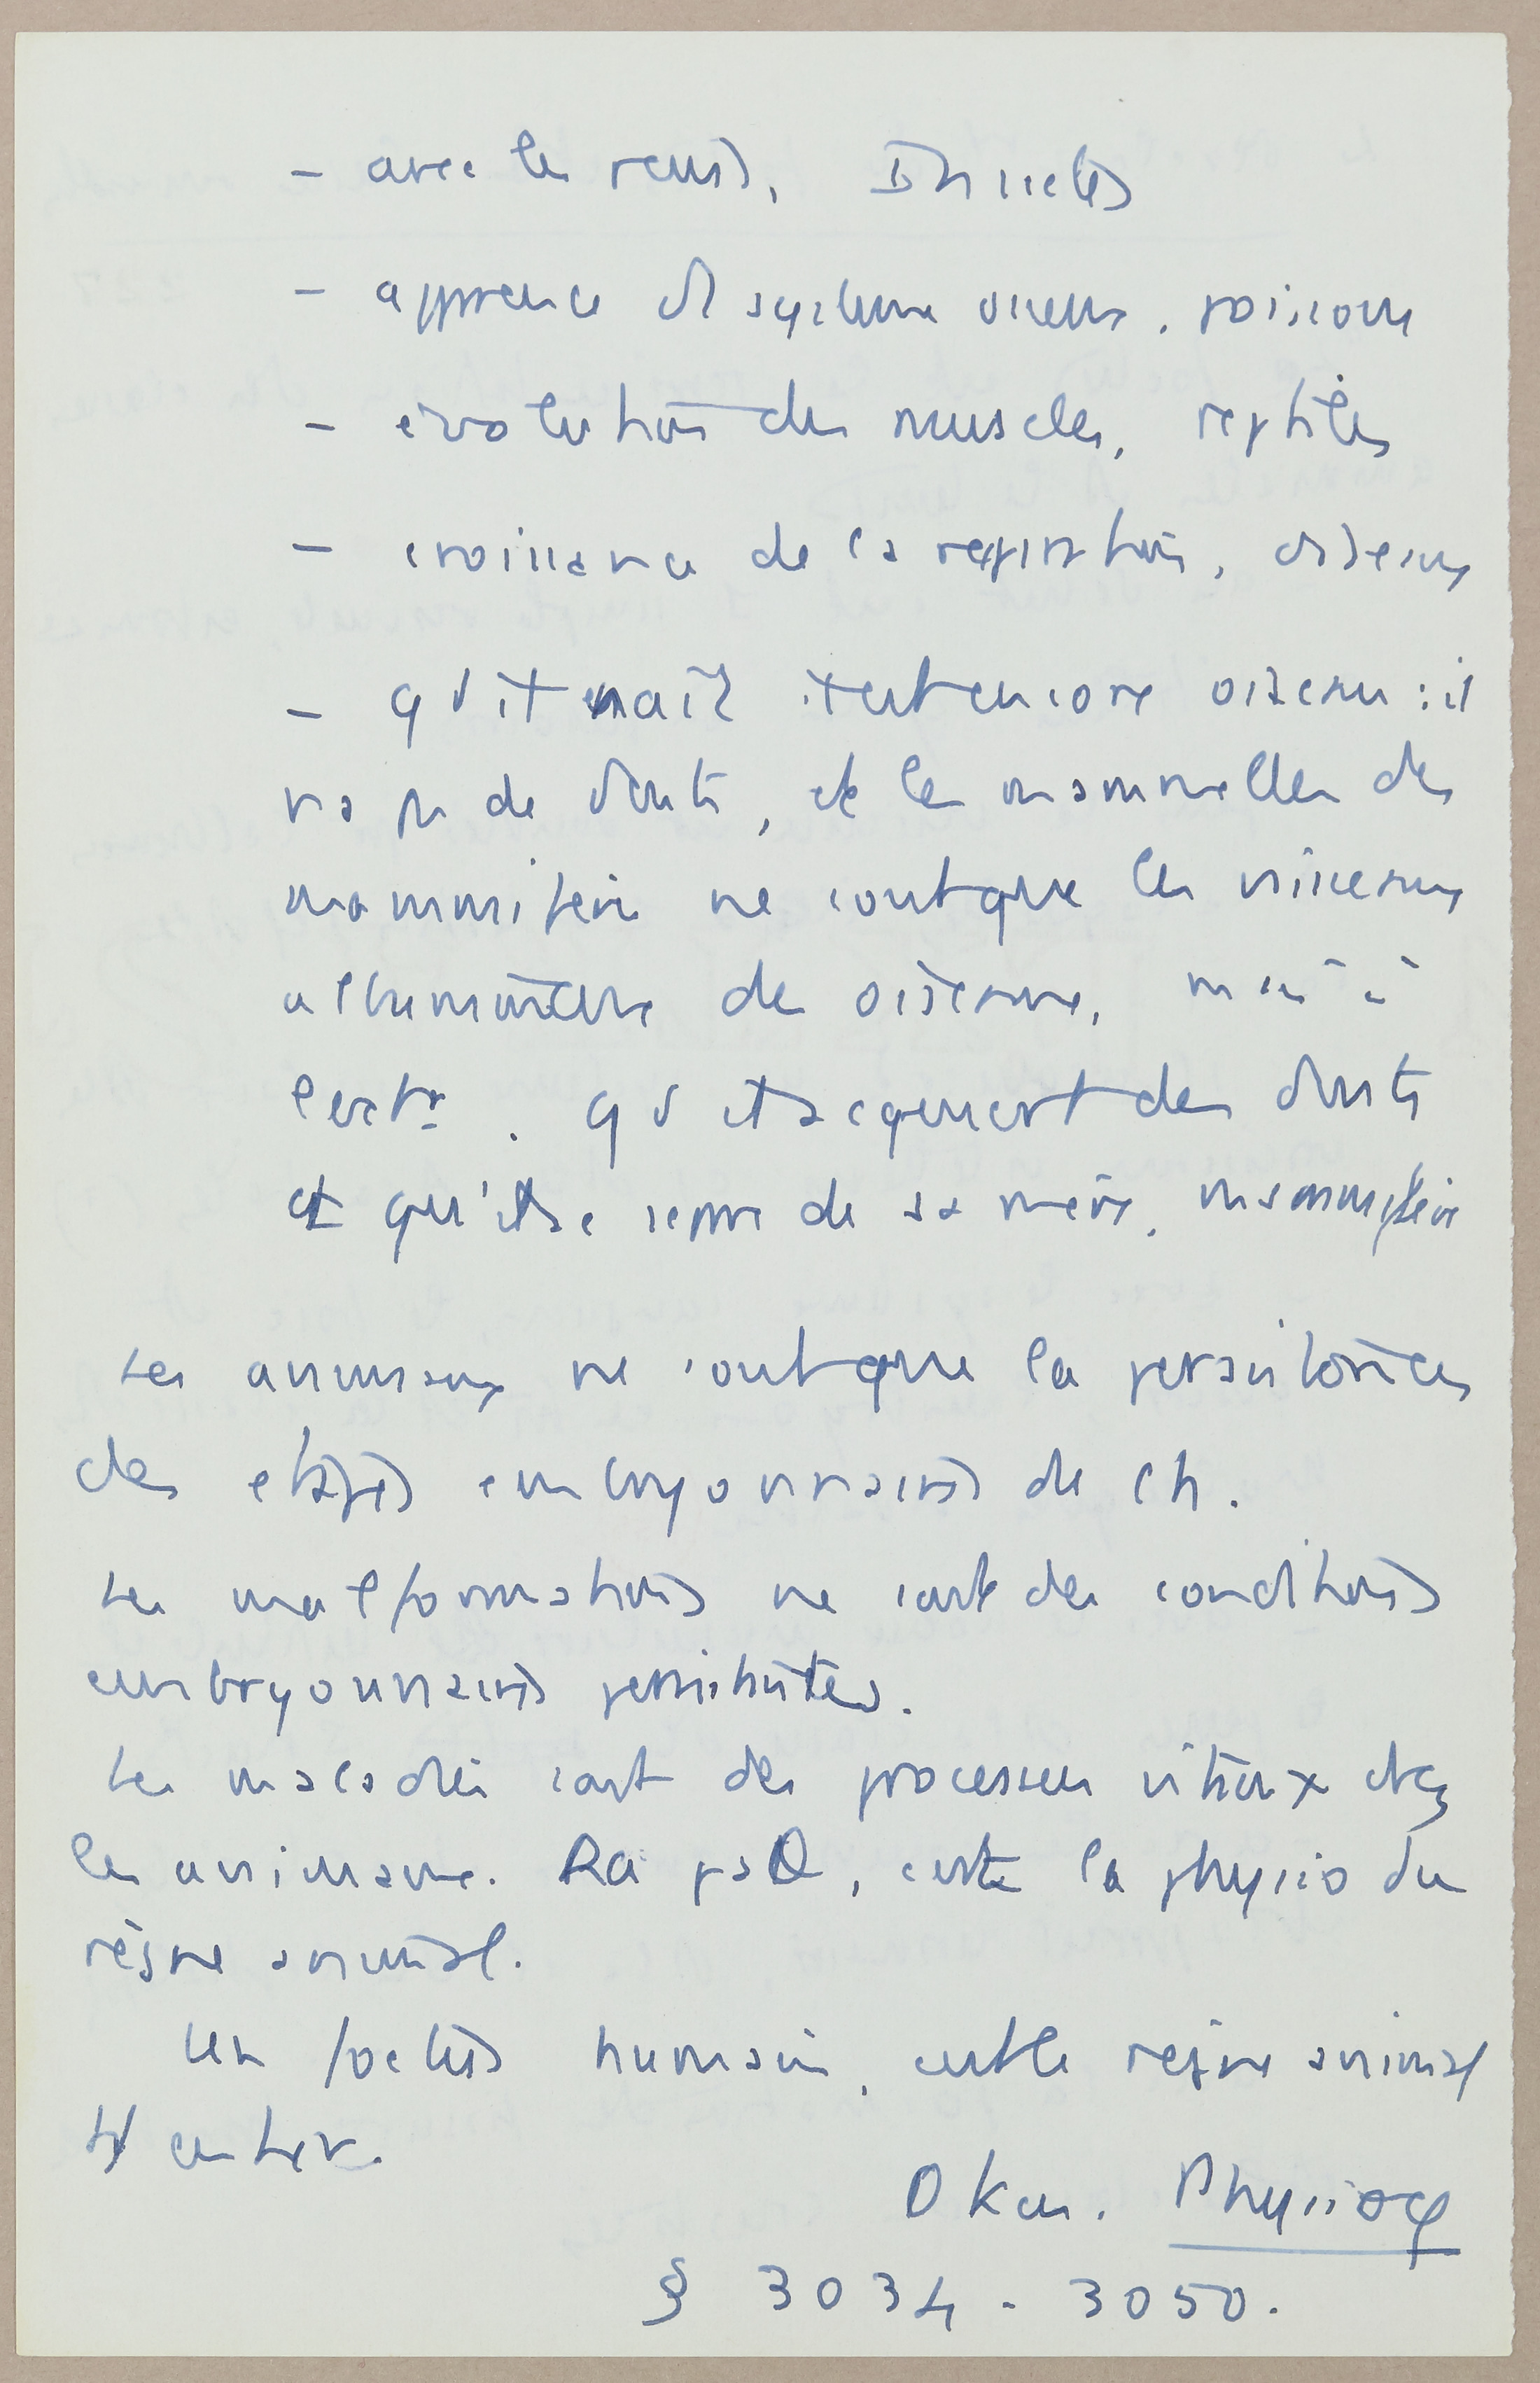 - avec les reins, Insectes
- apparence du système osseux, poissons
- évolution des muscles, reptiles
- croissance de la respiration, oiseaux
- qd il naît il est encore oiseau : il
n'a pas de dents, et les mammelles des
mammifères ne sont que les vaisseaux
albuminaux des oiseaux, mais à
l'extr. qd il acquiert des dents
et qu'il se sépare de sa mère, mammifère
Les animaux ne sont que la persistance
des étapes embryonnaires de l'h.
Les malformations ne sont des conditions
embryonnaires persistantes.
Les maladies sont des processus vitaux chez
les animaux. La paθ, c'est la physio du
règne animal.
Un foetus humain, c'est le règne animal
tt entier.
Oken. Physioφ
§ 3034 - 3050.